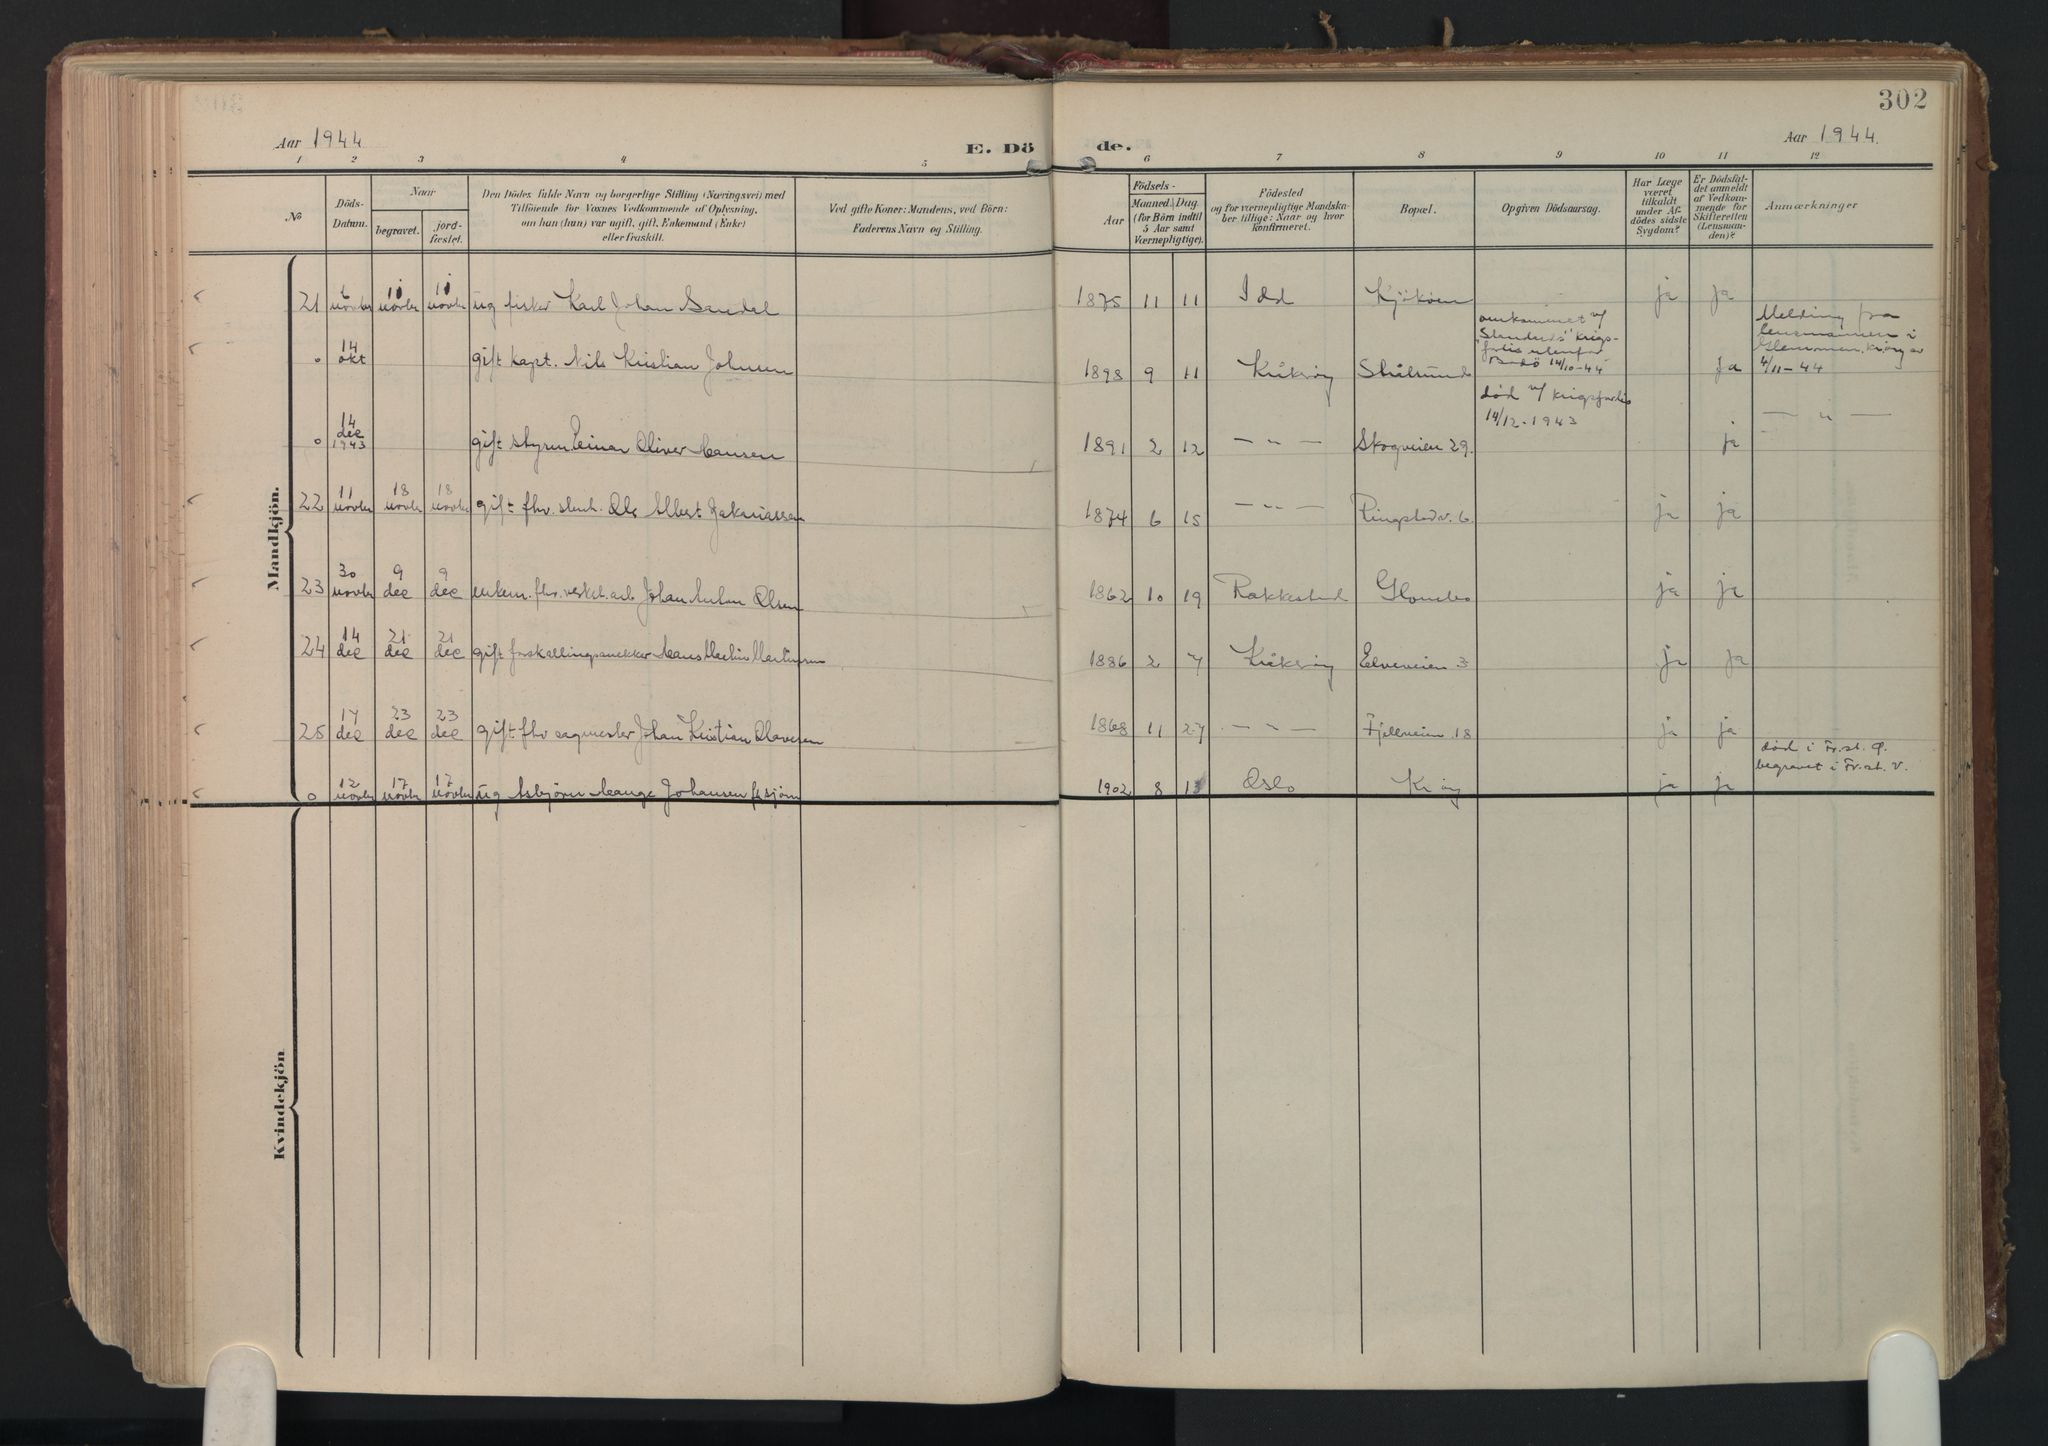 302
Aar 1944
E. Döde.
Aar 1944.
1 2 3 4 5 6 7 8 9 10 11 12
No
Döds-
Datum.
Naar
begravet.
jord-
fæstet.
Den Dödes fulde Navn og borgerlige Stilling (Næringsvei) med
Tilföiende for Voxnes Vedkommende af Oplysning,
om han (hun) var ugift, gift, Enkemand (Enke)
eller fraskilt.
Ved gifte Koner: Mandens, ved Börn:
Faderens Navn og Stilling.
Födsels-
Aar
Maaned. Dag.
(for Börn indtil
5 Aar samt
Værnepligtige).
Födested
og for værnepligtige Mandska-
ber tillige: Naar og hvor
konfirmeret.
Bopæl.
Opgiven Dödsaarsag.
Har Læge
været
tilkaldt
under Af-
dödes sidste
Sygdom?
Er Dödsfal-
det anmeldt
af Vedkom-
mende for
Skifteretten
(Lensman-
den)?
Anmærkninger
Mandkjön.
21 6 novbr 11 novbr 11 novbr ug fisker Karl Johan 1875 11 11 Idd Kjøkøen ja ja
o 14 okt gift kapt. Nils Kristian Johnsen 1898 9 11 Kråkerøy Stålsund omkommet v/
krigs-
forlis utenfor
Bodö 14/10-44 Ja Melding fra
lensmannen i
Glemmen, Krøy av
4/11-44
o 14 dec 1943 gift styrm. Einar Oliver Hansen 1891 2 12 — " — Skogveien 29. død v/ krigsforlis
14/12-1943 ja — " —
22 11 novbr 18 novbr 18 novbr gift fhv. Ole Albert Zakariassen 1874 6 15 — " — Ringstadv. 6 ja ja
23 30 novbr 9 dec 9 dec enkem. fhv. verkst. arb. Johan Anton Olsen 1862 10 19 Rakkestad Glombo ja ja
24 14 dec 21 dec 21 dec gift forskallingssnekker Hans Martin Martinsen 1886 2 7 Kråkerøy Elveveien 3 ja ja
25 17 dec 23 dec 23 dec gift fhv sagmester Johan Kristian Olavesen 1868 11 27 — " — Fjellveien 18 ja ja
o 12 novbr 17 novbr 17 novbr ug Asbjørn Hauge Johansen 1902 8 Oslo Krøy ja ja død i Fr.st. Ø.
begravet i Fr.st. V.
Kvindekjön